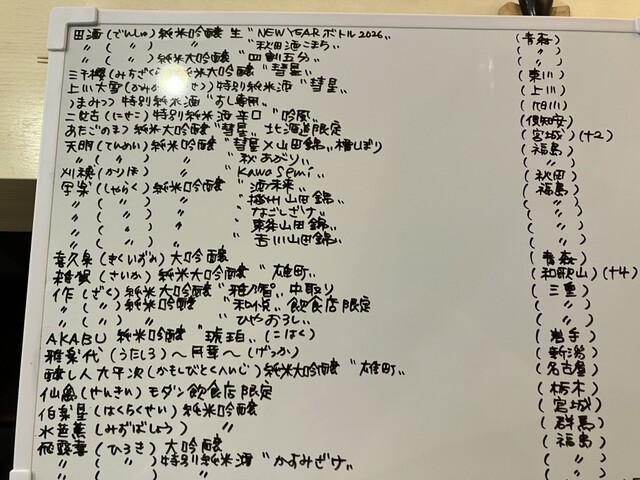 田酒(でんしゅ) 純米吟醸 生 "NEW YEAR ボトル 2026" (青森)
〃 ( 〃 ) 〃 "秋田酒こまち" ( 〃 )
〃 ( 〃 ) 純米大吟醸 "四割五分" ( 〃 )
三千櫻(みちざくら) 純米大吟醸 "彗星" (東川)
上川大雪 特別純米酒 "彗星" (上川)
特別純米酒 "おし寿専用"
二世古(にせこ) 特別純米酒 辛口 "吟風" (倶知安)
あたごのまつ 純米大吟醸 "彗星" 北海道限定 (宮城) (+2)
天明(てんめい) 純米大吟醸 "彗星×山田錦" 槽しぼり (福島)
〃 ( 〃 ) 〃 "秋あがり" ( 〃 )
刈穂(かりほ) 〃 "Kawasemi" (秋田)
写楽(しゃらく) 純米吟醸 "酒未来" (福島)
〃 ( 〃 ) 〃 "播州山田錦" ( 〃 )
〃 ( 〃 ) 〃 "なごしざけ" ( 〃 )
〃 ( 〃 ) 〃 "東条山田錦" ( 〃 )
〃 ( 〃 ) 〃 "吉川山田錦" ( 〃 )
喜久泉(きくいずみ) 大吟醸 (青森)
雑賀(さいか) 純米大吟醸 "雄町" (和歌山) (+4)
作(ざく) 純米大吟醸 "雅乃智" 中取り (三重)
〃 ( 〃 ) 純米吟醸 "和悦" 飲食店限定 ( 〃 )
〃 ( 〃 ) 〃 "ひやおろし" ( 〃 )
AKABU 純米吟醸 "琥珀" (こはく) (岩手)
雅楽代(うたしろ) ~月華~ (げっか) (新潟)
醸し人九平次(かもしびとくへいじ) 純米大吟醸 "雄町" (名古屋)
仙禽(せんきん) モダン 飲食店限定 (栃木)
伯楽星(はくらくせい) 純米吟醸 (宮城)
水芭蕉(みずばしょう) 〃 (群馬)
飛露喜(ひろき) 大吟醸 (福島)
〃 ( 〃 ) 特別純米酒 "かすみざけ" ( 〃 )
〃 ( 〃 ) 〃 ( 〃 )